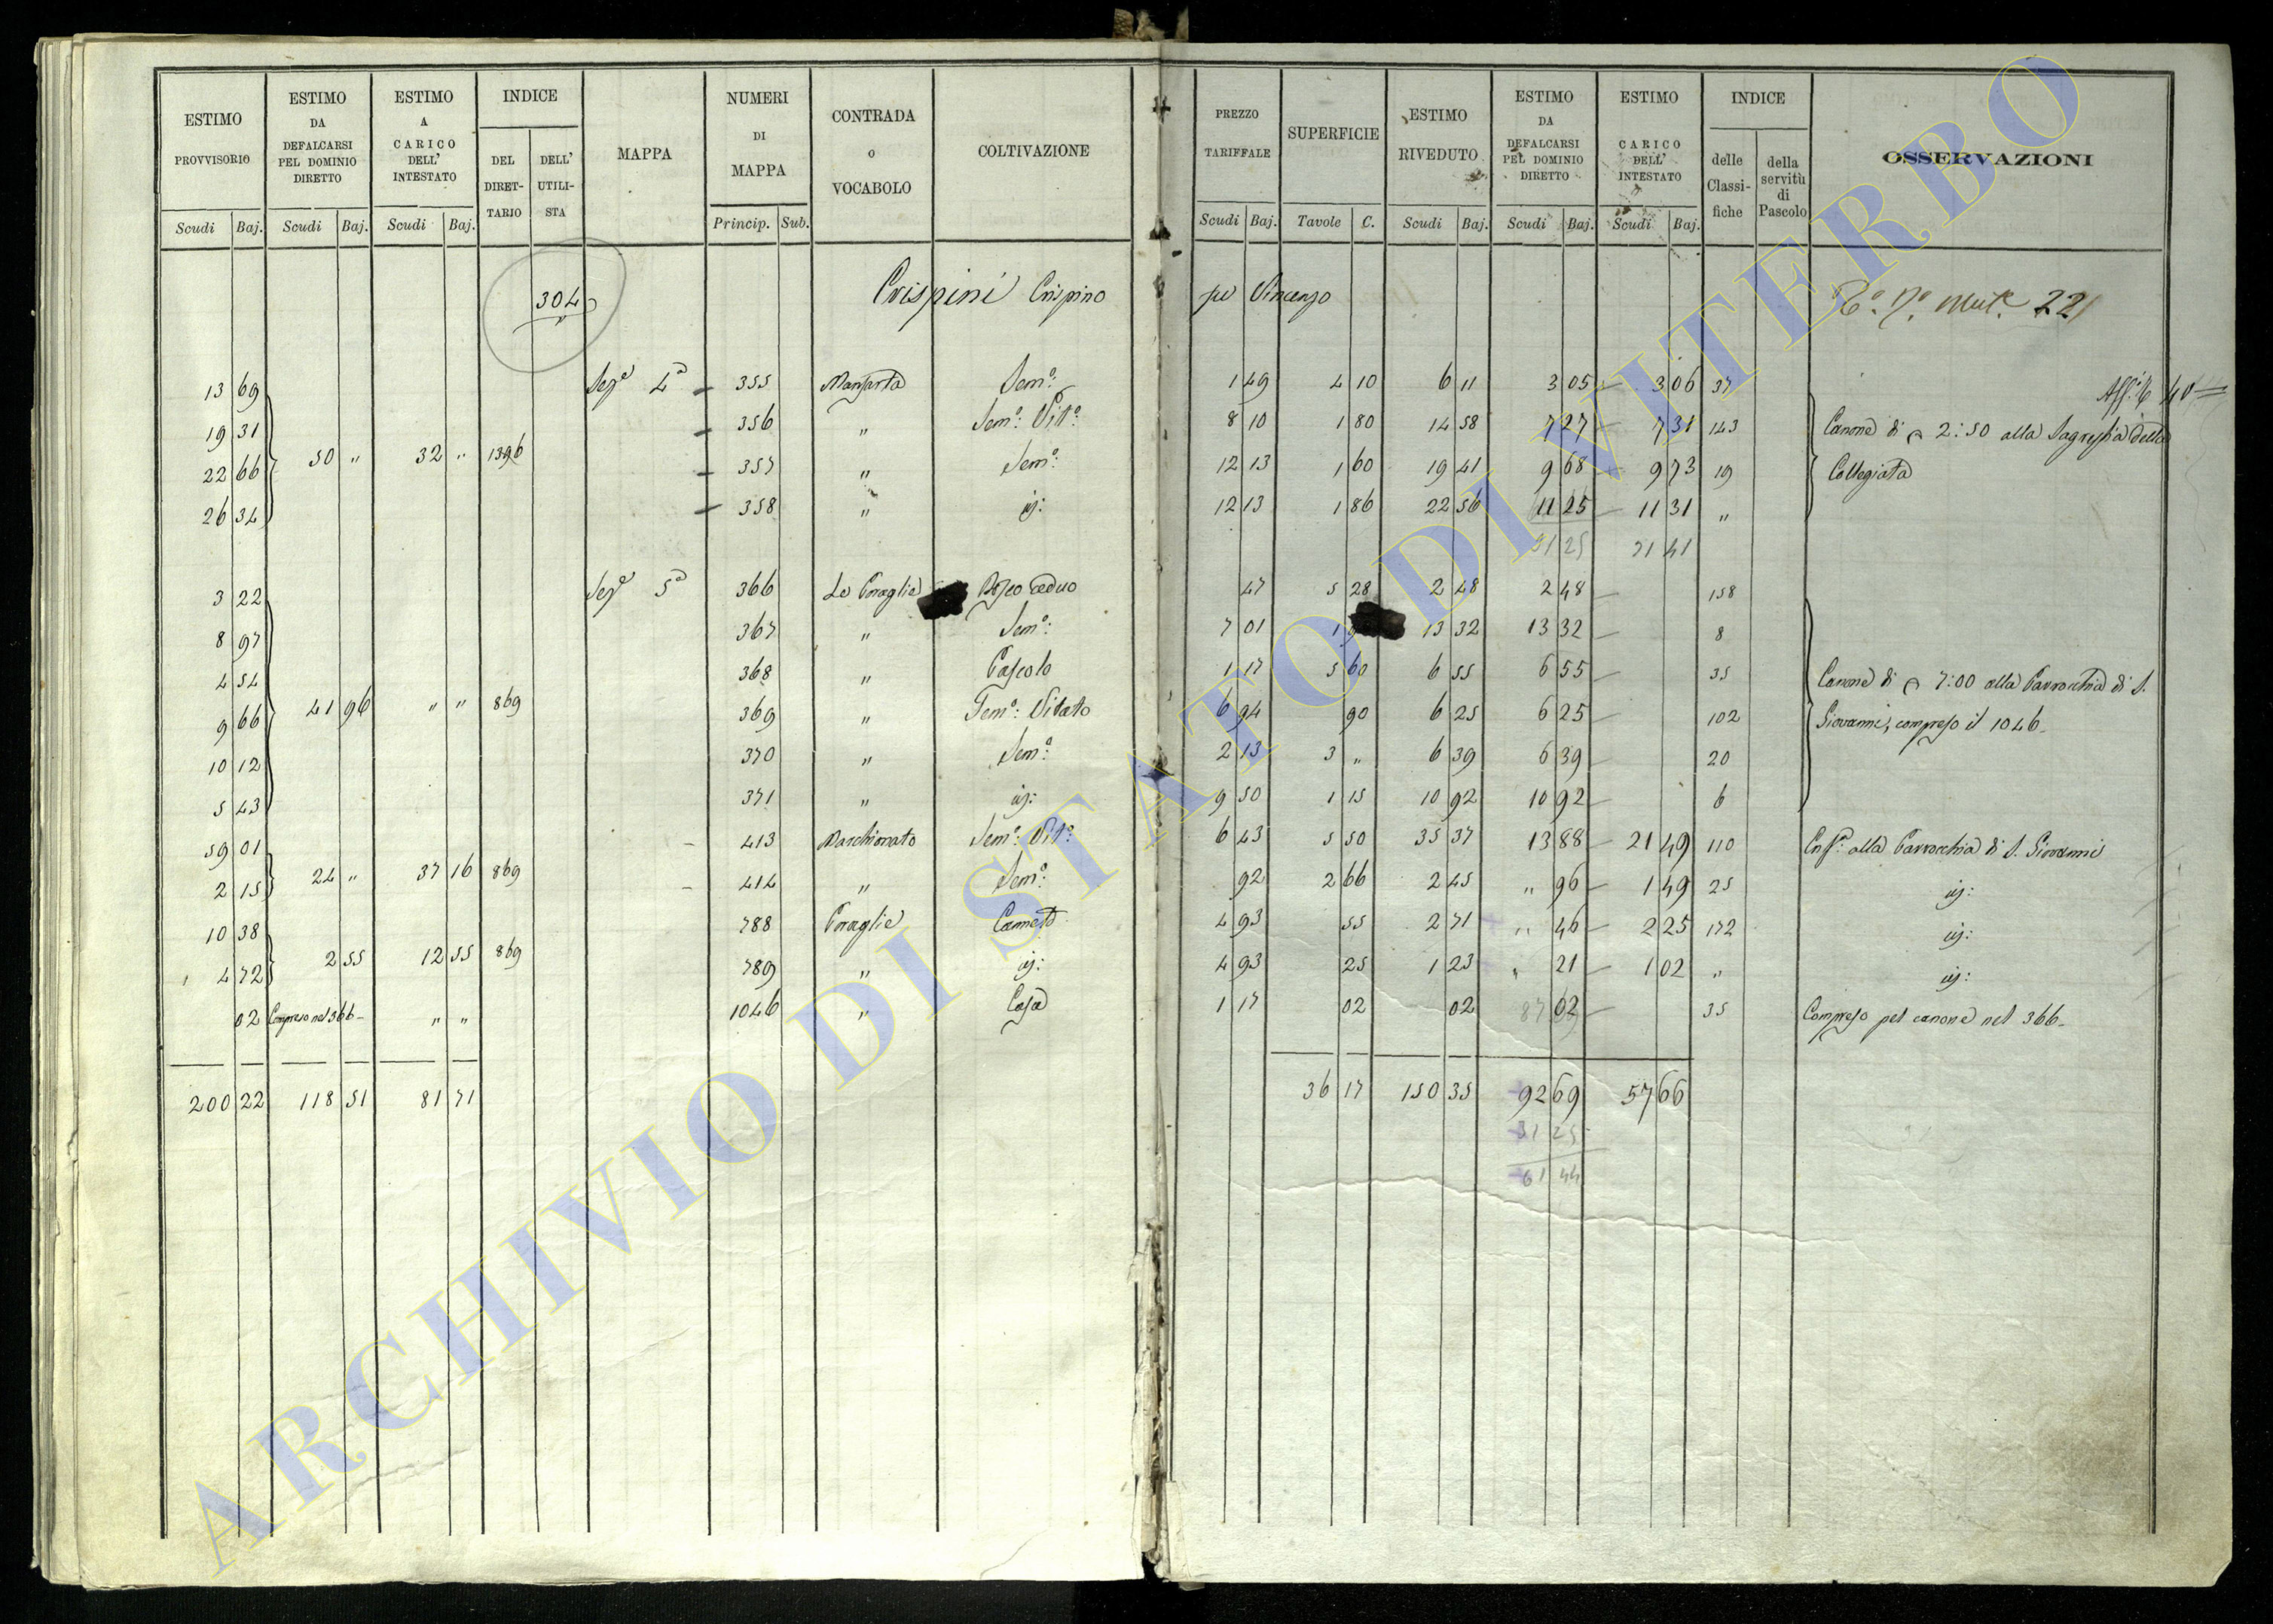 ESTIMO PROVVISORIO Scudi Baj.
ESTIMO DA DEFALCARSI PEL DOMINIO DIRETTO Scudi Baj.
ESTIMO A CARICO DELL' INTESTATO Scudi Baj.
INDICE DEL DIRET- TARIO DELL' UTILI- STA
MAPPA
NUMERI DI MAPPA Princip. Sub.
CONTRADA O VOCABOLO
COLTIVAZIONE
PREZZO TARIFFALE Scudi Baj.
SUPERFICIE Tavole C.
ESTIMO RIVEDUTO Scudi Baj.
ESTIMO DA DEFALCARSI PEL DOMINIO DIRETTO Scudi Baj.
ESTIMO CARICO DELL' INTESTATO Scudi Baj.
INDICE delle Classi- fiche della servitù di Pascolo
OSSERVAZIONI
304 Crispini Crispino fu Vincenzo 221
13 69 Sez.e 4a 355 Sem.o 1 49 4 10 6 11 3 05 3 06 37
19 31 356 " Sem.o Vit.o 8 10 1 80 14 58 7 27 7 31 143 Canone di 2:50 alla Sagrestia della
50 " 32 " 1396
22 66 357 " Sem.o 12 13 1 60 19 41 9 68 9 73 19 Collegiata
26 34 358 " id: 12 13 1 86 22 56 11 25 11 31 "
31 25 31 41
3 22 Sez.e 5a 366 Le Poraglie Bosco ceduo 47 5 28 2 48 2 48 158
8 97 367 " Sem.o 7 01 1 9 13 32 13 32 8
4 54 368 " Pascolo 1 17 5 60 6 55 6 55 35 Canone di 7:00 alla Parrocchia di S.
41 96 " " 869
9 66 369 " Sem.o Vitato 6 94 90 6 25 6 25 102 Giovanni, compreso il 1046
10 12 370 " Sem.o 2 13 3 " 6 39 6 39 20
5 43 371 " id: 9 50 1 15 10 92 10 92 6
59 01 413 Marchionato Sem.o Vit.o 6 43 5 50 35 37 13 88 21 49 110 alla Parrocchia di S. Giovanni
24 " 37 16 869
2 15 414 " Sem.o 92 2 66 2 45 " 96 1 49 25 id:
10 38 788 Poraglie Canneto 4 93 55 2 71 " 46 2 25 172 id:
2 55 12 55 869
4 72 789 " id: 4 93 25 1 23 " 21 1 02 " id:
02 Compreso nel 366 " " 1046 " Casa 1 17 02 02 02 35 Compreso pel canone nel 366
200 22 118 51 81 71 36 17 150 35 92 69 57 66
31 25
61 44
ARCHIVIO DI STATO DI VITERBO